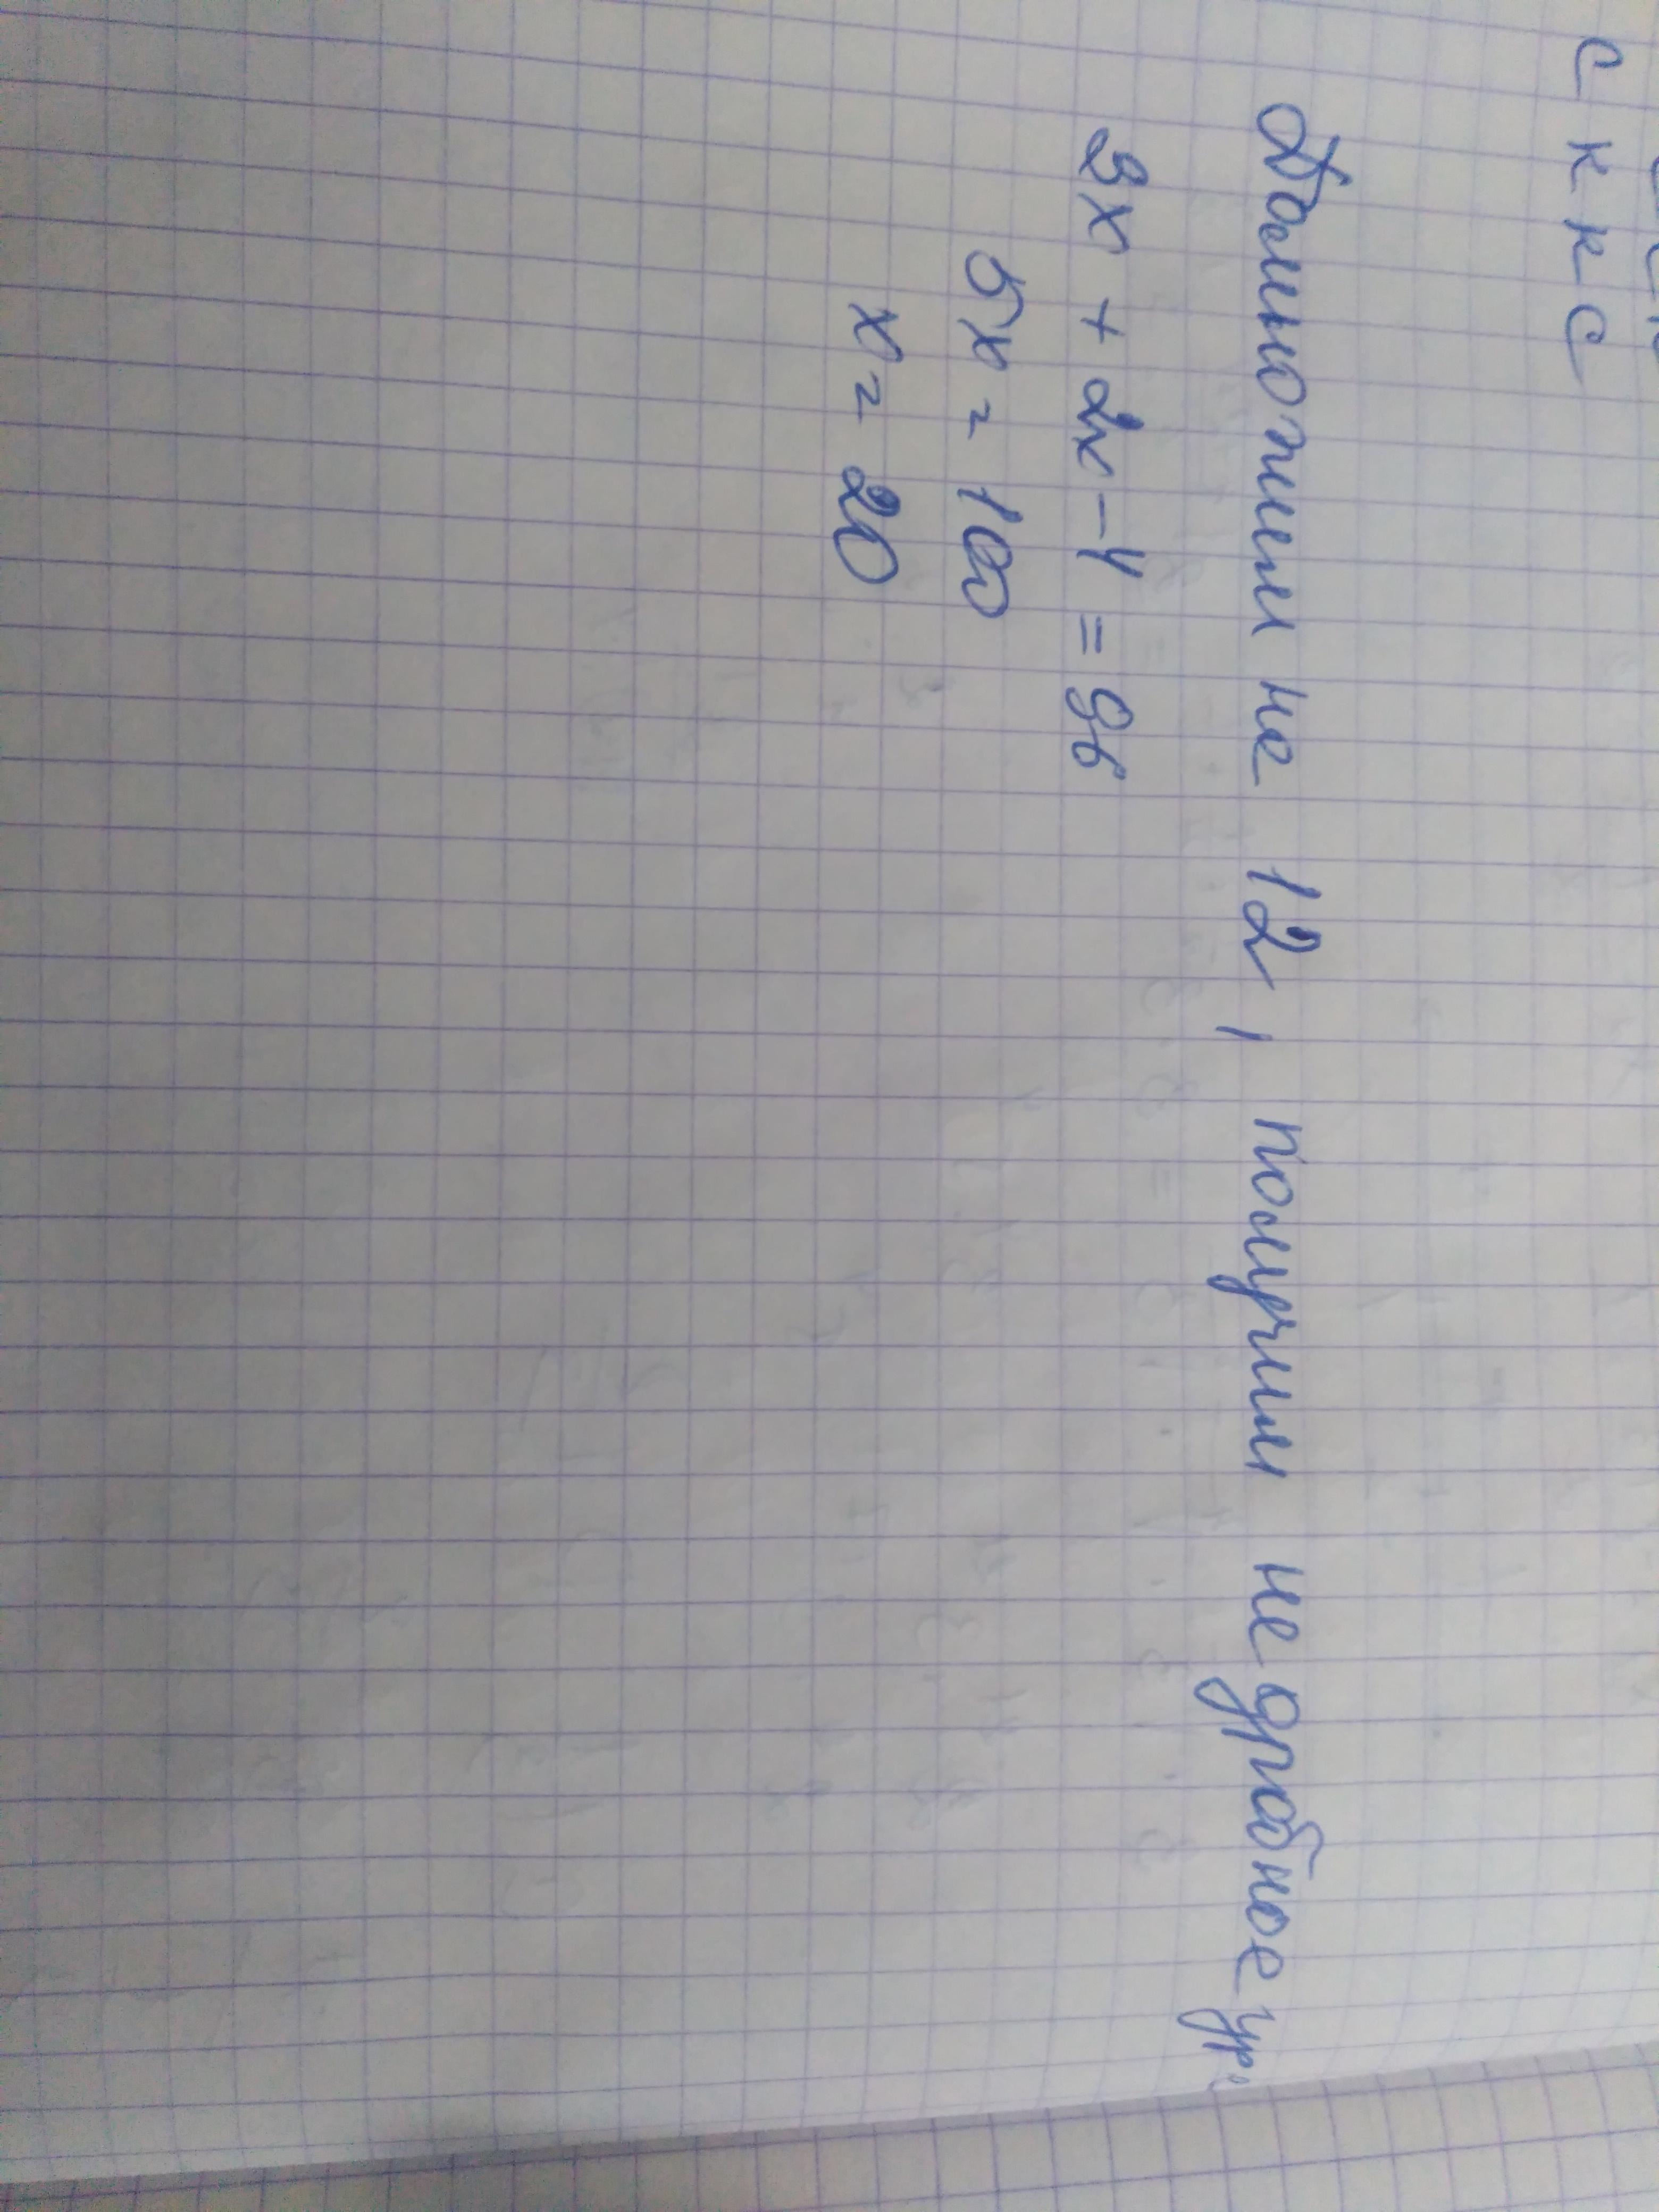 с к к с
Домножим не 12, получим не дробное ур.
3x + 2x - 4 = 96
5x = 100
x = 20